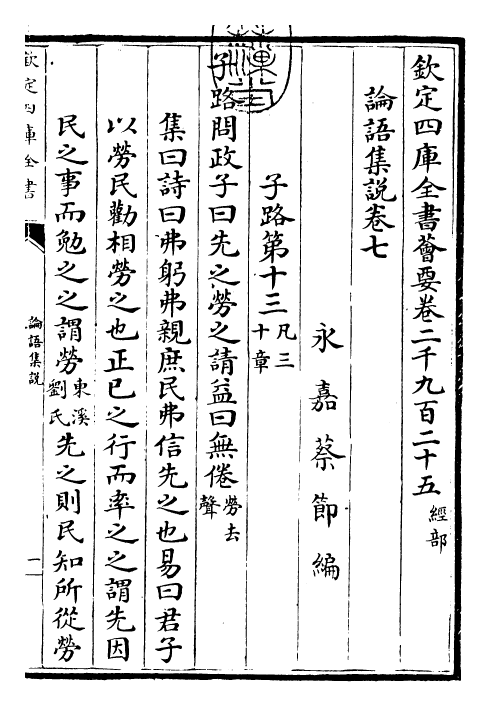 欽定四庫全書薈要卷二千九百二十五 經部
論語集說卷七
永嘉蔡節編
子路第十三 凡三十章
子路問政子曰先之勞之請益曰無倦 勞去聲
集曰詩曰弗躬弗親庶民弗信先之也易曰君子
以勞民勸相勞之也正己之行而率之之謂先因
民之事而勉之之謂勞 東溪劉氏 先之則民知所從勞
欽定四庫全書
論語集說
一